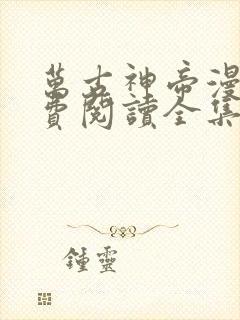 萬古神帝漫
費閱讀全集
鍾靈